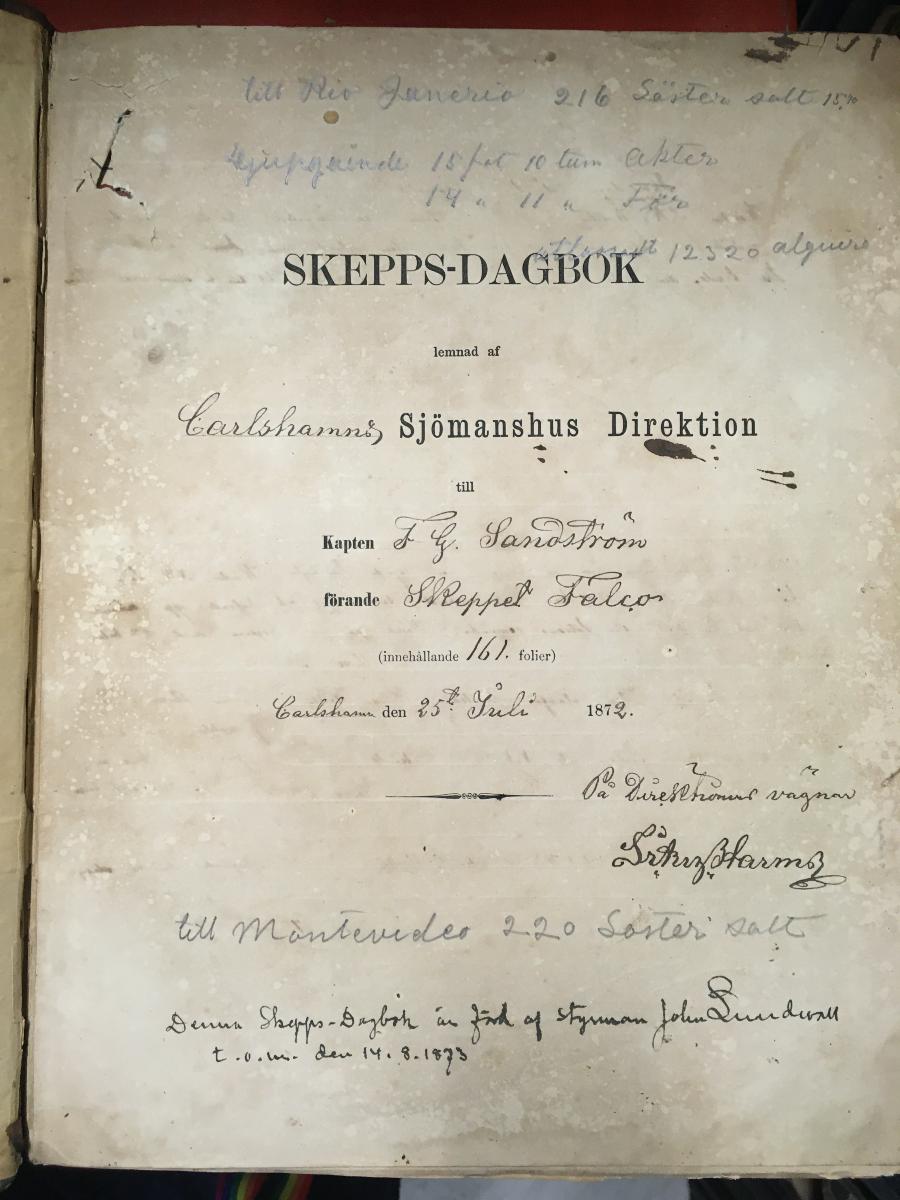 till Rio Janerio 216 Läster salt
djupgående 15 fot 10 tum Akter
14 " 11 " För
12320 alquire
SKEPPS-DAGBOK
lemnad af
Carlshamns Sjömanshus Direktion
till
Kapten F G. Sandström
förande Skeppet Falco
(innehållande 161. folier)
Carlshamn den 25t. Juli 1872.
På Direktionens vägnar
till Montevideo 220 Läster salt
Denna Skepps-Dagbok är förd af styrman John Lundwall
t.o.m. den 14.8.1873